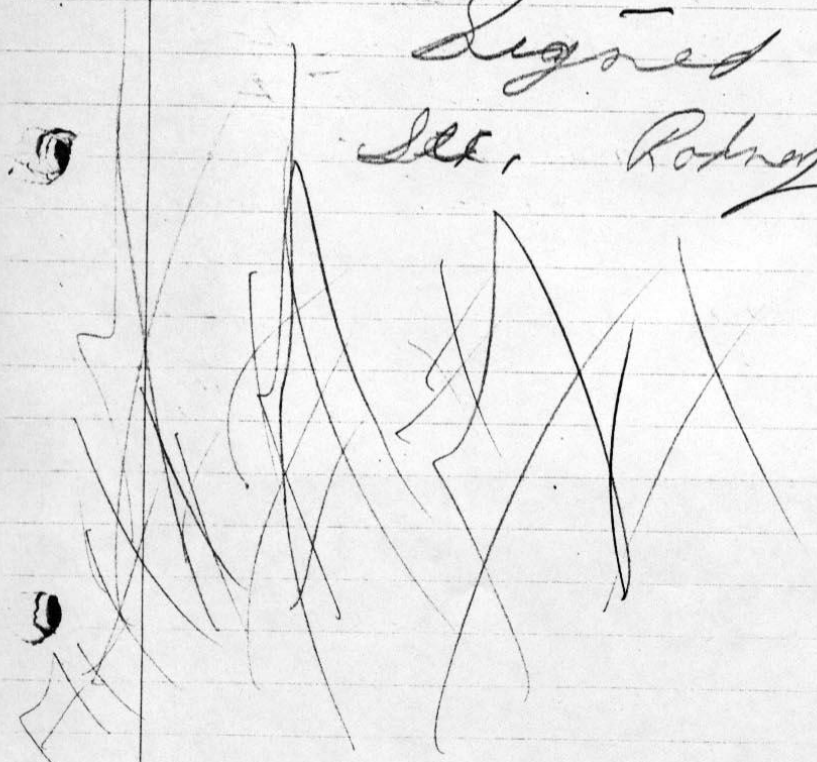 Signed
Sec, Rodney